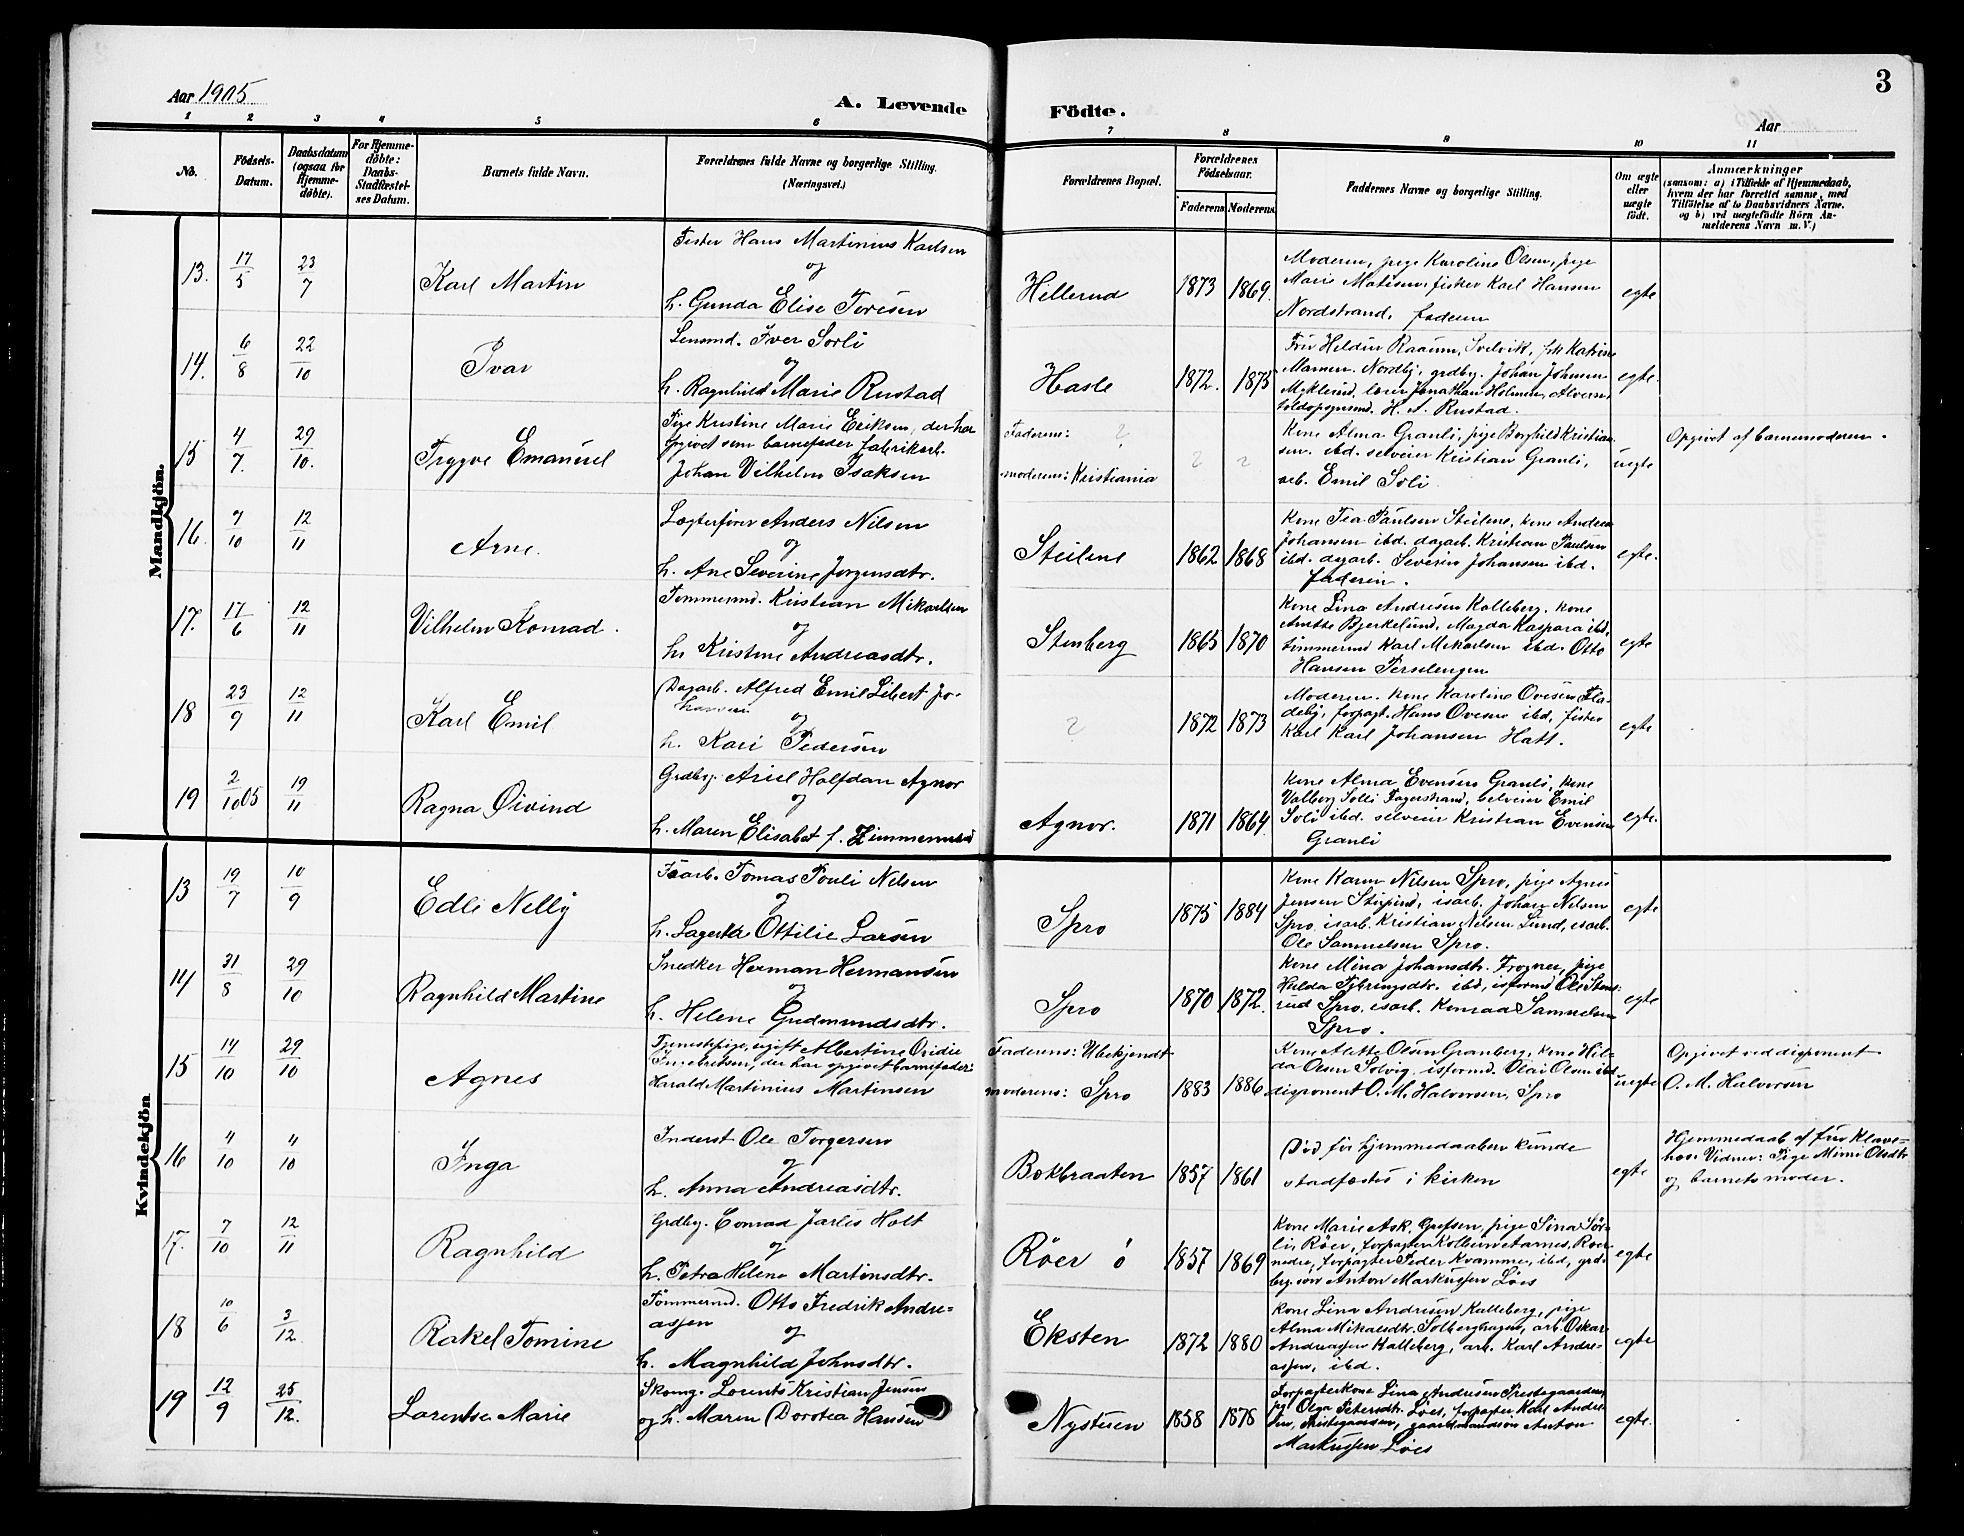 3
Aar 1905
A. Levende Födte.
Aar
1 2 3 4 5 6 7 8 9 10 11
No.
Födsels-
Datum.
Daabsdatum
(ogsaa for
Hjemme-
döbte).
For Hjemme-
döbte:
Daabs-
Stadfæstel-
ses Datum.
Barnets fulde Navn.
Forældrenes fulde Navne og borgerlige Stilling.
(Næringsvei.)
Forældrenes Bopæl.
Forældrenes
Fødselsaar.
Faderens Moderens
Faddernes Navne og borgerlige Stilling.
Om ægte
eller
uægte
født.
Anmærkninger
(saasom: a) i Tilfælde af Hjemmedaab,
hvem der har forrettet samme, med
Tilföielse af to Daabsvidners Navne,
og b) ved uægtefödte Börn An-
melderens Navn m. V.)
Mandkjön.
13. 17/5 23/7 Karl Martin
Fisker Hans Martinius Karlsen
og
h. Gunda Elise Toresen
Hellerud 1873 1869.
Moderen, pige Karoline Olsen, pige
Marie Matisen, fisker Karl Hansen
Nordstrand, faderen
egte
14. 6/8 22/10 Ivar
Lensmd. Iver Sorli
og
h. Ragnhild Marie Rustad
Hasle 1872. 1875
Fru Heldur Raaum, Svelvik, frk Katrine
Mamen. Nordby, grdbg. Johan Johnsen
Myklerud, lærer Jonathan Holmen,
H. A. Rustad.
egte.
15 4/7. 29/10. Trygve Emanuel
Pige Kristine Marie Eriksen, der har
opgivet som barnefader fabrikarb.
Johan Vilhelm Isaksen
Faderens: ?
moderens: Kristiania
? ?
Kone Alma Granli, pige Borghild Kristian-
sen. ibd. selveier Kristian Granli,
arb. Emil Soli
uegte
Opgivet af barnemoderen.
16. 7/10 12/11 Arne.
Lægterfører Anders Nilsen
og
h. Ane Severine Jorgensdtr.
Steilene 1862 1868
Kone Tea Paulsen Steilene, kone Andrea
Johansen ibd. dagarb. Kristian Paulsen
ibd. dagarb. Severin Johansen ibd.
faderen.
egte.
17. 17/6 12/11 Vilhelm Konrad.
Tommermd. Kristian Mikarlsen
og
h. Kristine Andreasdtr.
Stenberg 1865 1870
Kone Lina Andresen Kalleberg. kone
Anette Bjerkelund, Magda Kaspara ibd.
timmermd Karl Mikarlsen ibd. Otto
Hansen
egte
18 23/9 12/11 Karl Emil
Dagarb. Alfred Emil Libert Jo-
hansen
og
h. Kari Pedersen
? 1872 1873
Moderen. kone Karoline Ovesen Fla-
deby, forpagt. Hans Ovesen ibd, fisker
Karl Karl Johansen Hatt.
egte
19 2/10 05 19/11 Ragna Øivind
Grdbg. Ariel Halfdan Agnor
og
h. Maren Elisabet f. Zimmermand
Agnor. 1871 1864
Kone Alma Evensen Granli, kone
Valborg Solli Fagerstrand, selveier Emil
Soli ibd. selveier Kristian Evensen
Granli
egte.
Kvindekjön
13 19/7 10/9 Edle Nelly
Isarb. Tomas Pouli Nilsen
og
h. Lagerta Ottilie Larsen
Spro 1875 1884
Kone Karen Nilsen Spro, pige Agnes
Jensen isarb. Johan Nilsen
Spro, isarb. Kristian Nilsen Lund, isarb.
Ole Samuelsen Spro.
egte
14 31/8 29/10 Ragnhild Martine
Snedker Herman Hermansen
og
h. Helene Gudmundsdtr.
Spro 1870 1872.
Kone Mina Johansdtr. Frogner, pige
Hulda ibd, isformd Ole Stens-
rud Spro, isarb. Konrad Samuelsen
Spro.
egte
15 14/10 29/10 Agnes
Tjenestepige, ugift Albertine Oridie
Ingebretsen, der har opgivet barnefader:
Harald Martinius Martinsen
Faderens: Ubekjendt
moderens: Spro
1883 1886
Kone Alette Olsen Granberg, kone Hil-
da Olsen Solvig. isformd. Olai Olsen ibd
disponent O. M. Halvorsen, Spro
uegte
Opgivet ved disponent
O. M. Halvorsen
16 4/10 4/10 Inga
Inderst Ole Torgersen
og
h. Anna Andreasdtr.
Bokbraaten 1857 1861
Død før hjemmedaaben kunde
stadfæstes i kirken
egte
Hjemmedaab af fru Klave-
nes. Vidner: Pige Mimi Olsdtr
og barnets moder.
17. 7/10 12/11 Ragnhild
Grdbg. Conrad Jarles Holt
og
h. Petra Helene Martinsdtr.
Røer ø 1857 1869
Kone Marie Ask, Grefsen, pige Lina Sør-
li, Røer, forpagter Kolbein Aarnes, Roer
nedre, forpagter Peder Kvamme, ibd, grd-
bg. søn Anton Markussen Løes
egte
18 10/6 3/12. Rakel Tomine
Tømmermd. Otto Fredrik Andre-
assen
og
h. Magnhild Johnsdtr.
Eksten 1872 1880
Kone Lina Andresen Kalleberg, pige
Alma Mikalsdtr. Solberghagen, arb. Oskar
Andreassen Kalleberg, arb. Karl Andre-
assen, ibd.
egte
19 12/9 25/12. Lorentse Marie
Skomg. Lorents Kristian Jensen
og h. Maren Dorotea Hansen
Nystuen 1858 1878
Forpagterkone Lina Andresen Prestegaarden,
pg Olga Petersdtr. Løes, forpagter Karl Andre-
sen, Prestegaarden, gaardmandssøn Anton
Markussen Løes
egte.